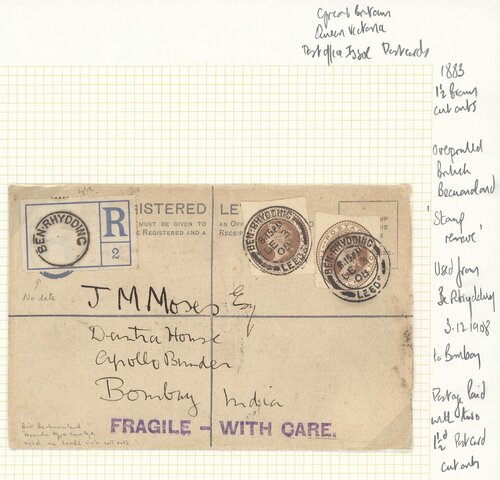 Great Britain
Queen Victoria
Post Office Issue Postcards
1883
1½ Brown
cut outs
overprinted
British
Bechuanaland
'Stamp
remove'
Used from
Ben Rhydding
3.12.1908
to Bombay
Postage Paid
with two
1½d Postcard
cut outs
BEN-RHYDDING
R
2
No date
ISTERED LE
MUST BE GIVEN TO
BE REGISTERED AND A
AN OF
RECEI
BEN-RHYDDING
8.15PM
DE 3
08
LEEDS
BEN-RHYDDING
8.15PM
DE 3
08
LEEDS
J M Moses Esq
Dantra House
Apollo Bunder
Bombay India
FRAGILE - WITH CARE.